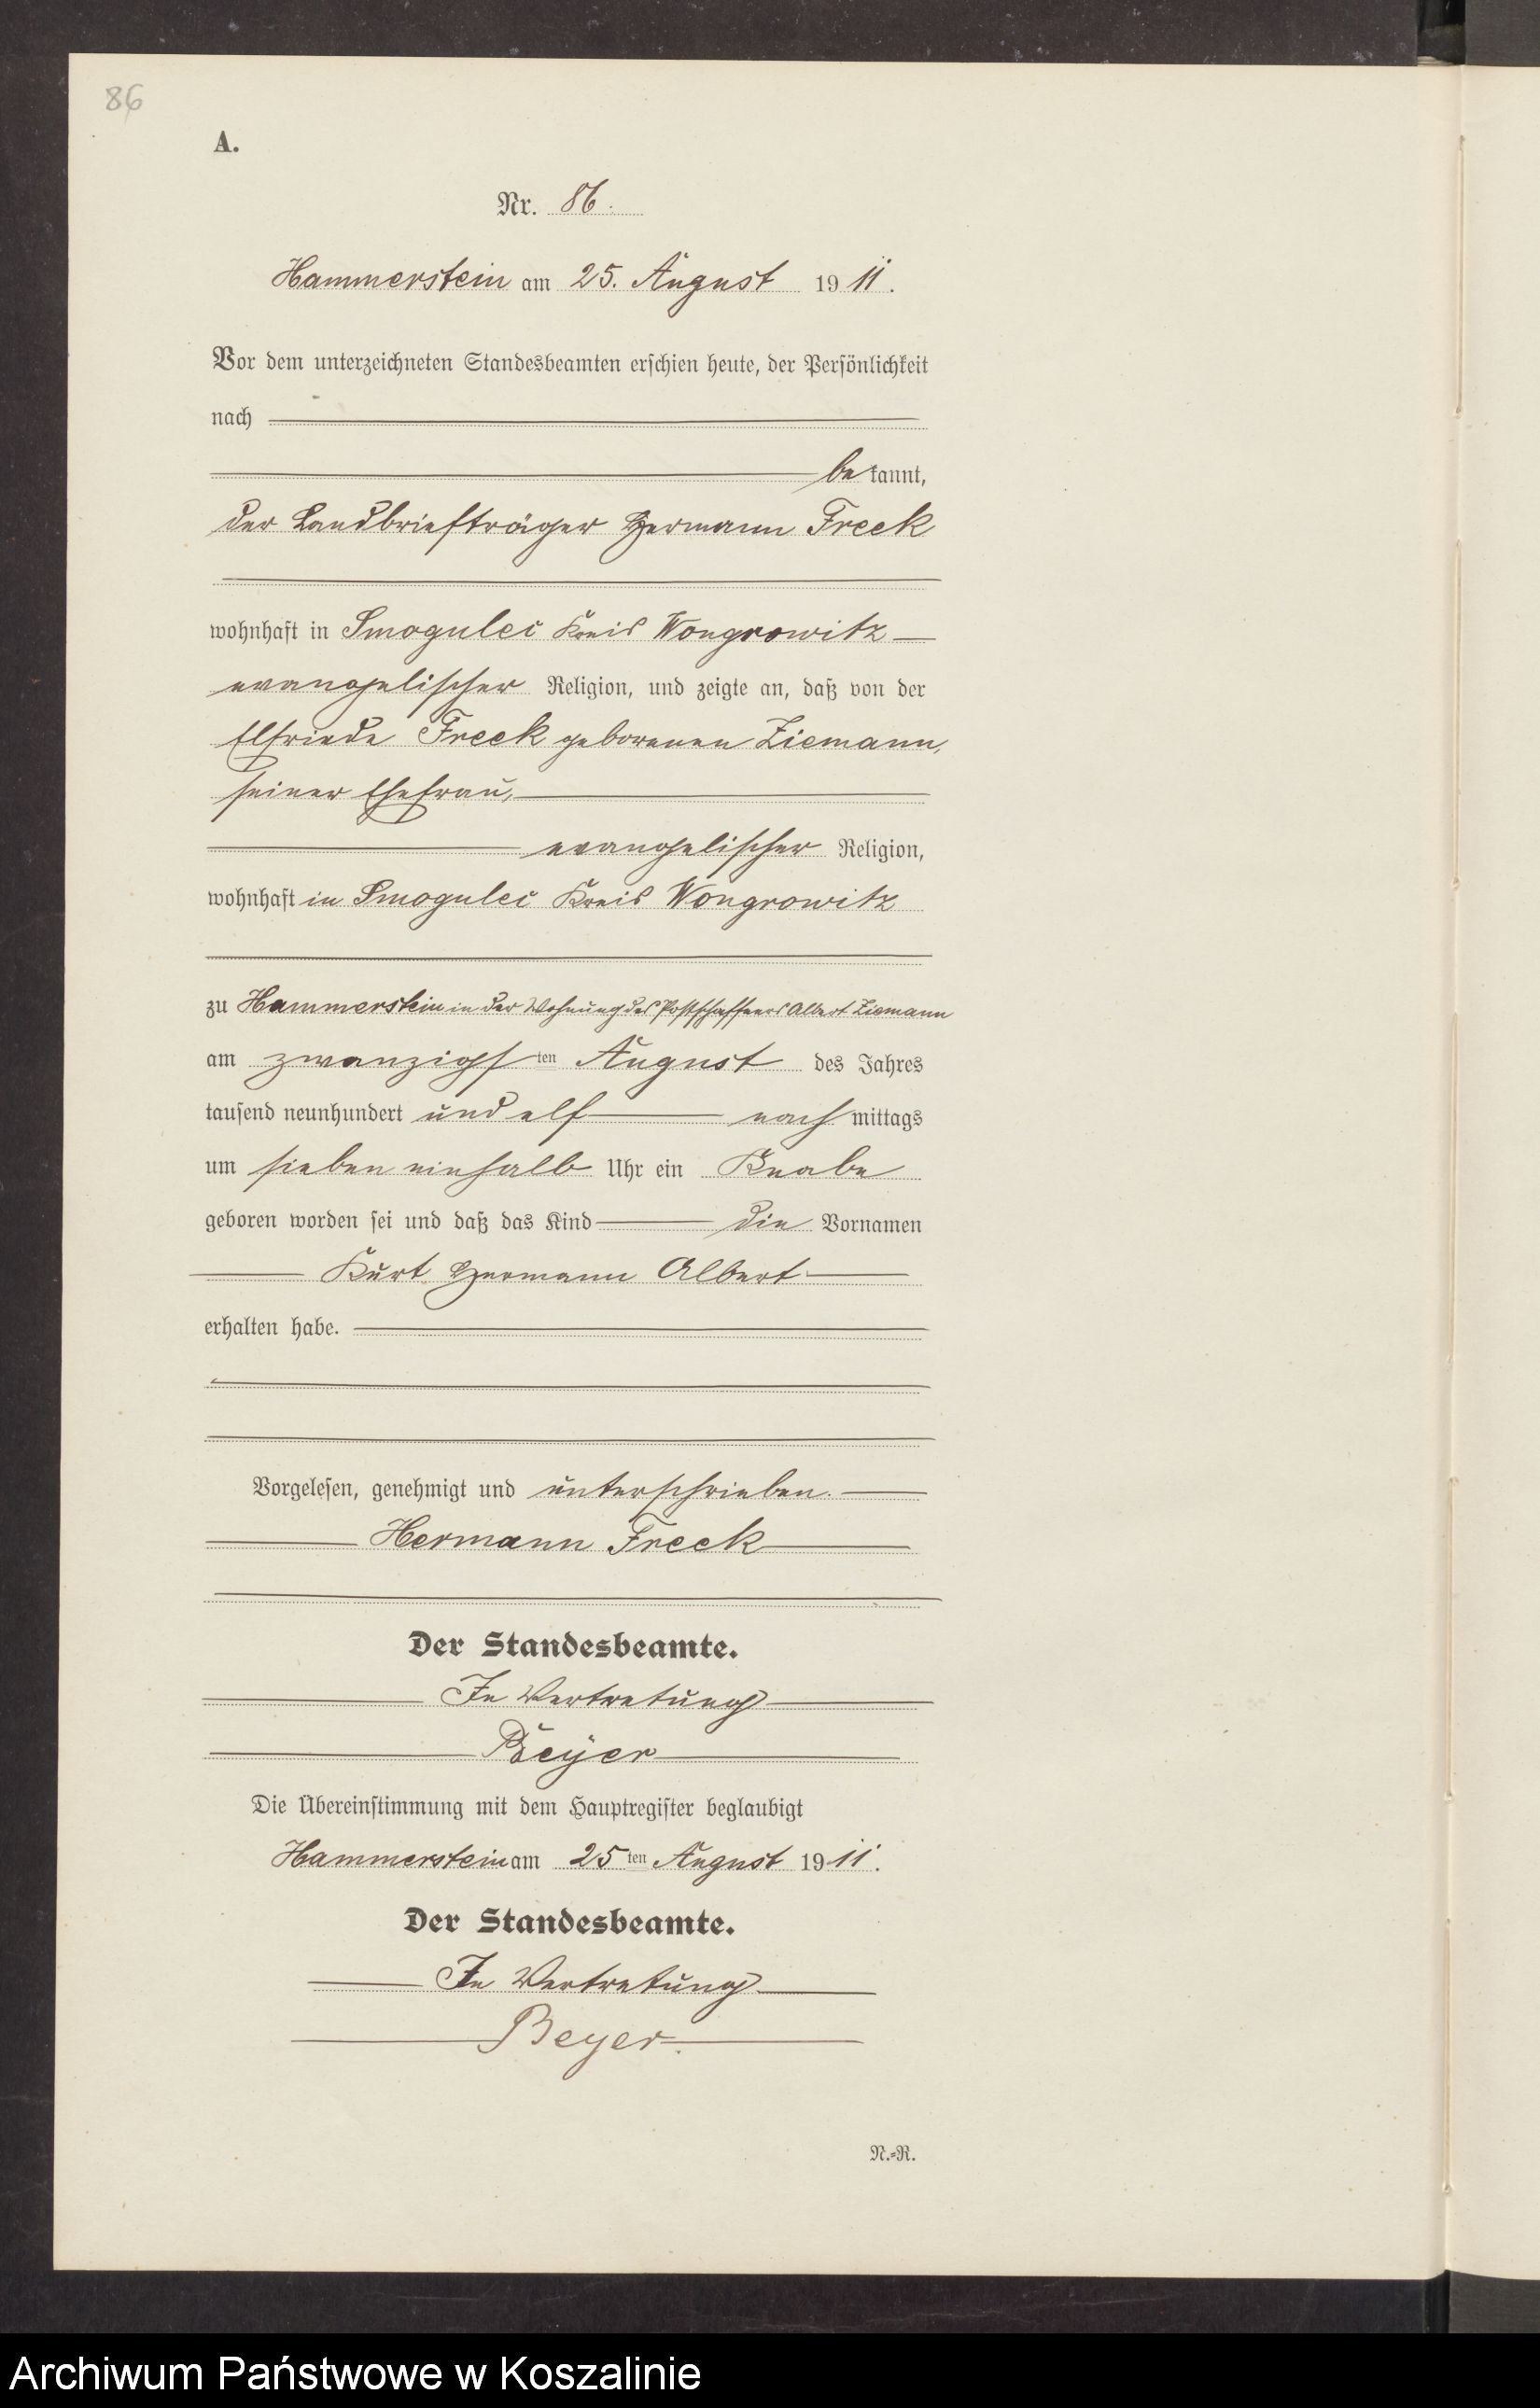 86
A.
Nr. 86.
Hammerstein am 25. August 1911.
Vor dem unterzeichneten Standesbeamten erschien heute, der Persönlichkeit
nach
bekannt,
der Landbriefträger Hermann Freek
wohnhaft in Smogulec Kreis Wongrowitz
evangelischer Religion, und zeigte an, daß von der
Elfriede Freek geborenen Ziemann,
seiner Ehefrau,
evangelischer Religion,
wohnhaft in Smogulec Kreis Wongrowitz
zu Hammerstein in der Wohnung des Postschaffners Albert Ziemann
am zwanzigsten August des Jahres
tausend neunhundert und elf nachmittags
um sieben einhalb Uhr ein Knabe
geboren worden sei und daß das Kind die Vornamen
Kurt Hermann Albert
erhalten habe.
Vorgelesen, genehmigt und unterschrieben.
Hermann Freek
Der Standesbeamte.
In Vertretung
Beyer
Die Übereinstimmung mit dem Hauptregister beglaubigt
Hammerstein am 25ten August 1911.
Der Standesbeamte.
In Vertretung
Beyer.
N.=R.
Archiwum Państwowe w Koszalinie